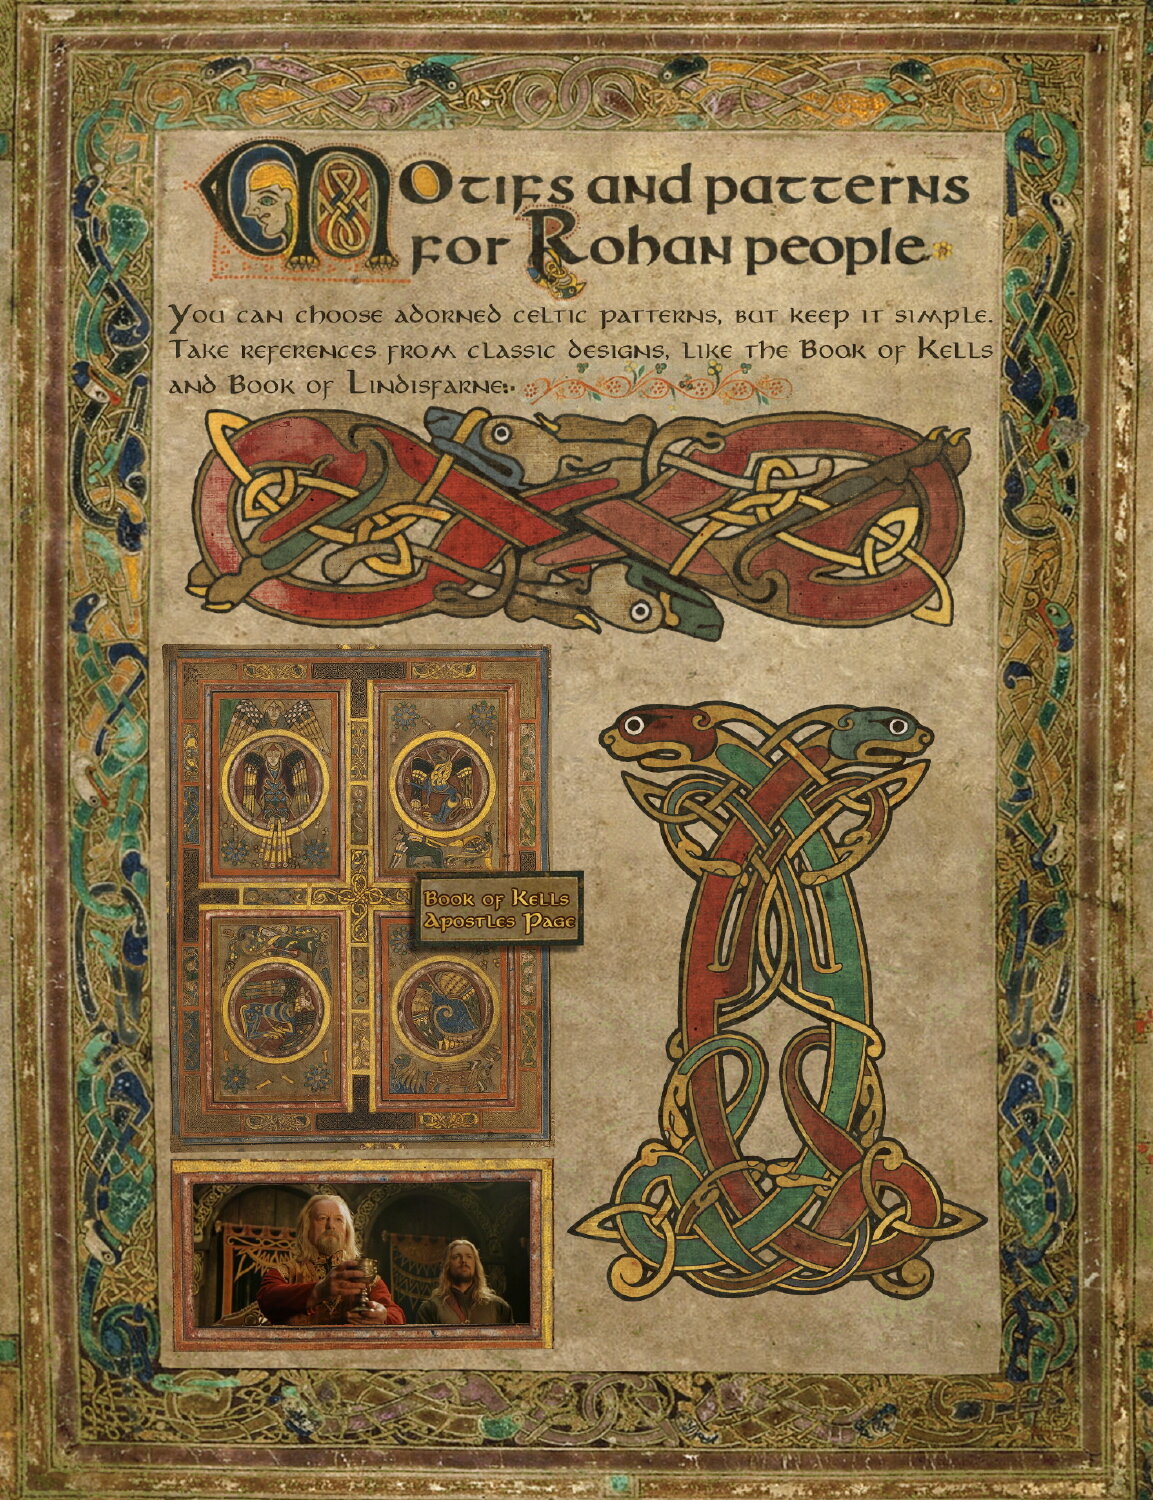 Motifs and patterns
for Rohan people
You can choose adorned celtic patterns, but keep it simple.
Take references from classic designs, like the Book of Kells
and Book of Lindisfarne:.
Book of Kells
Apostles Page